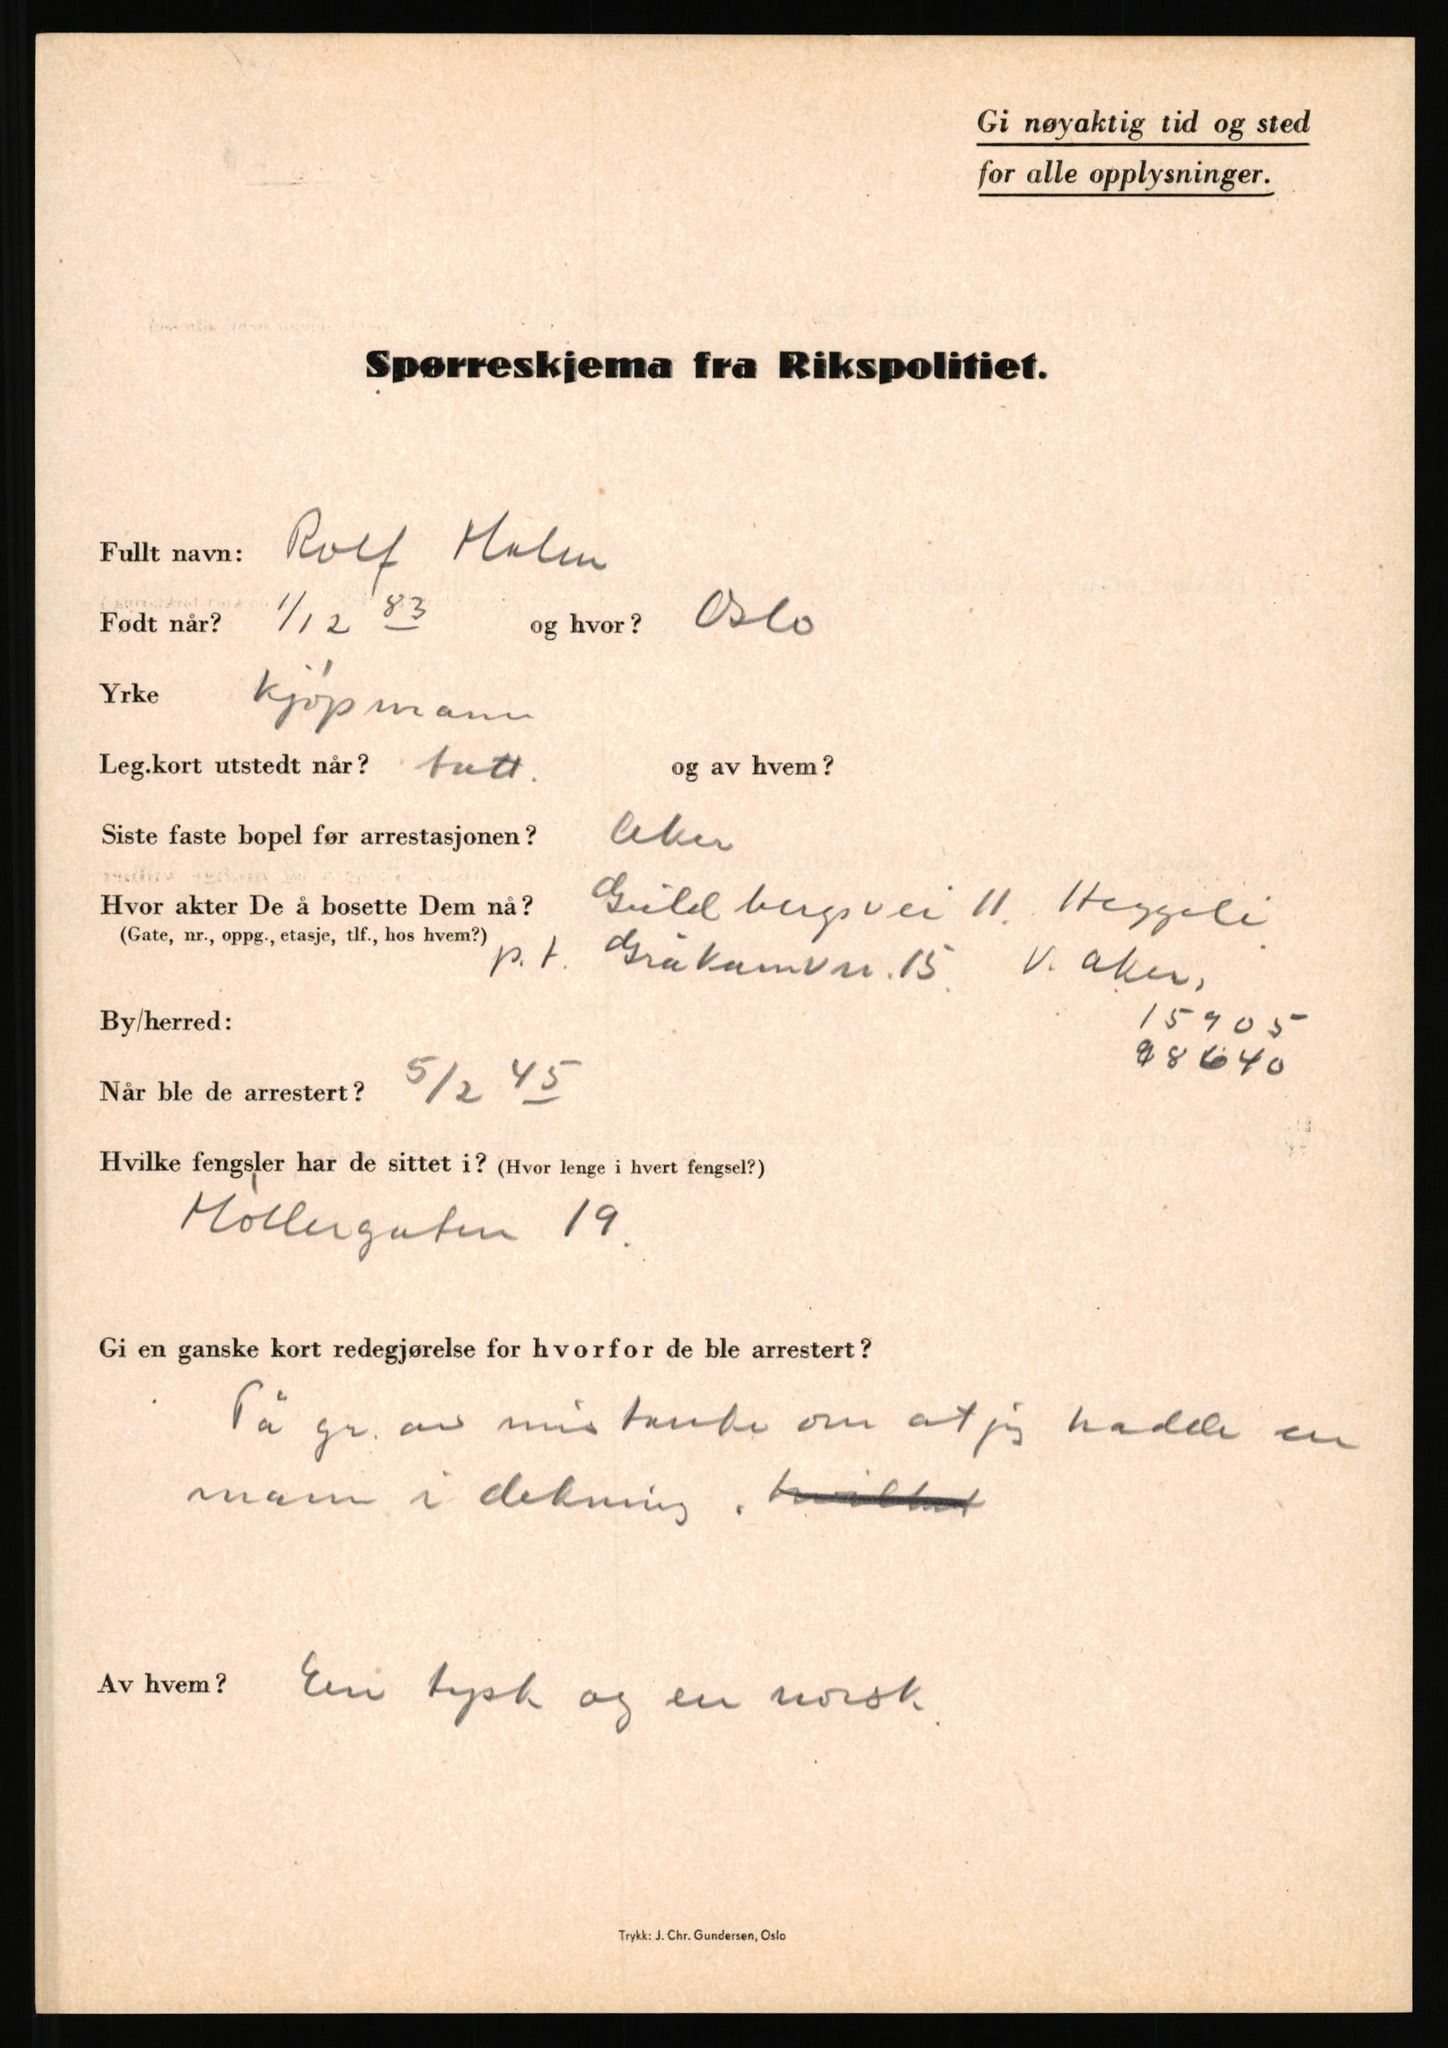 Gi nøyaktig tid og sted
for alle opplysninger.
Spørreskjema fra Rikspolitiet.
Fullt navn: Rolf Holm
Født når? 1/12 83 og hvor? Oslo
Yrke Kjöpmann
Leg.kort utstedt når? tatt. og av hvem?
Siste faste bopel før arrestasjonen? Aker
Hvor akter De å bosette Dem nå? Guldbergsvei 11. Heggeli
(Gate, nr., oppg., etasje, tlf., hos hvem?) p.t. Gråkamvn. 15 V. Aker,
By/herred: 15905
98640
Når ble de arrestert? 5/2 45
Hvilke fengsler har de sittet i? (Hvor lenge i hvert fengsel?)
Möllergaten 19.
Gi en ganske kort redegjørelse for hvorfor de ble arrestert?
På gr. av mistanke om at jeg hadde en
mann i dekning.
Av hvem? En tysk og en norsk.
Trykk: J. Chr. Gundersen, Oslo